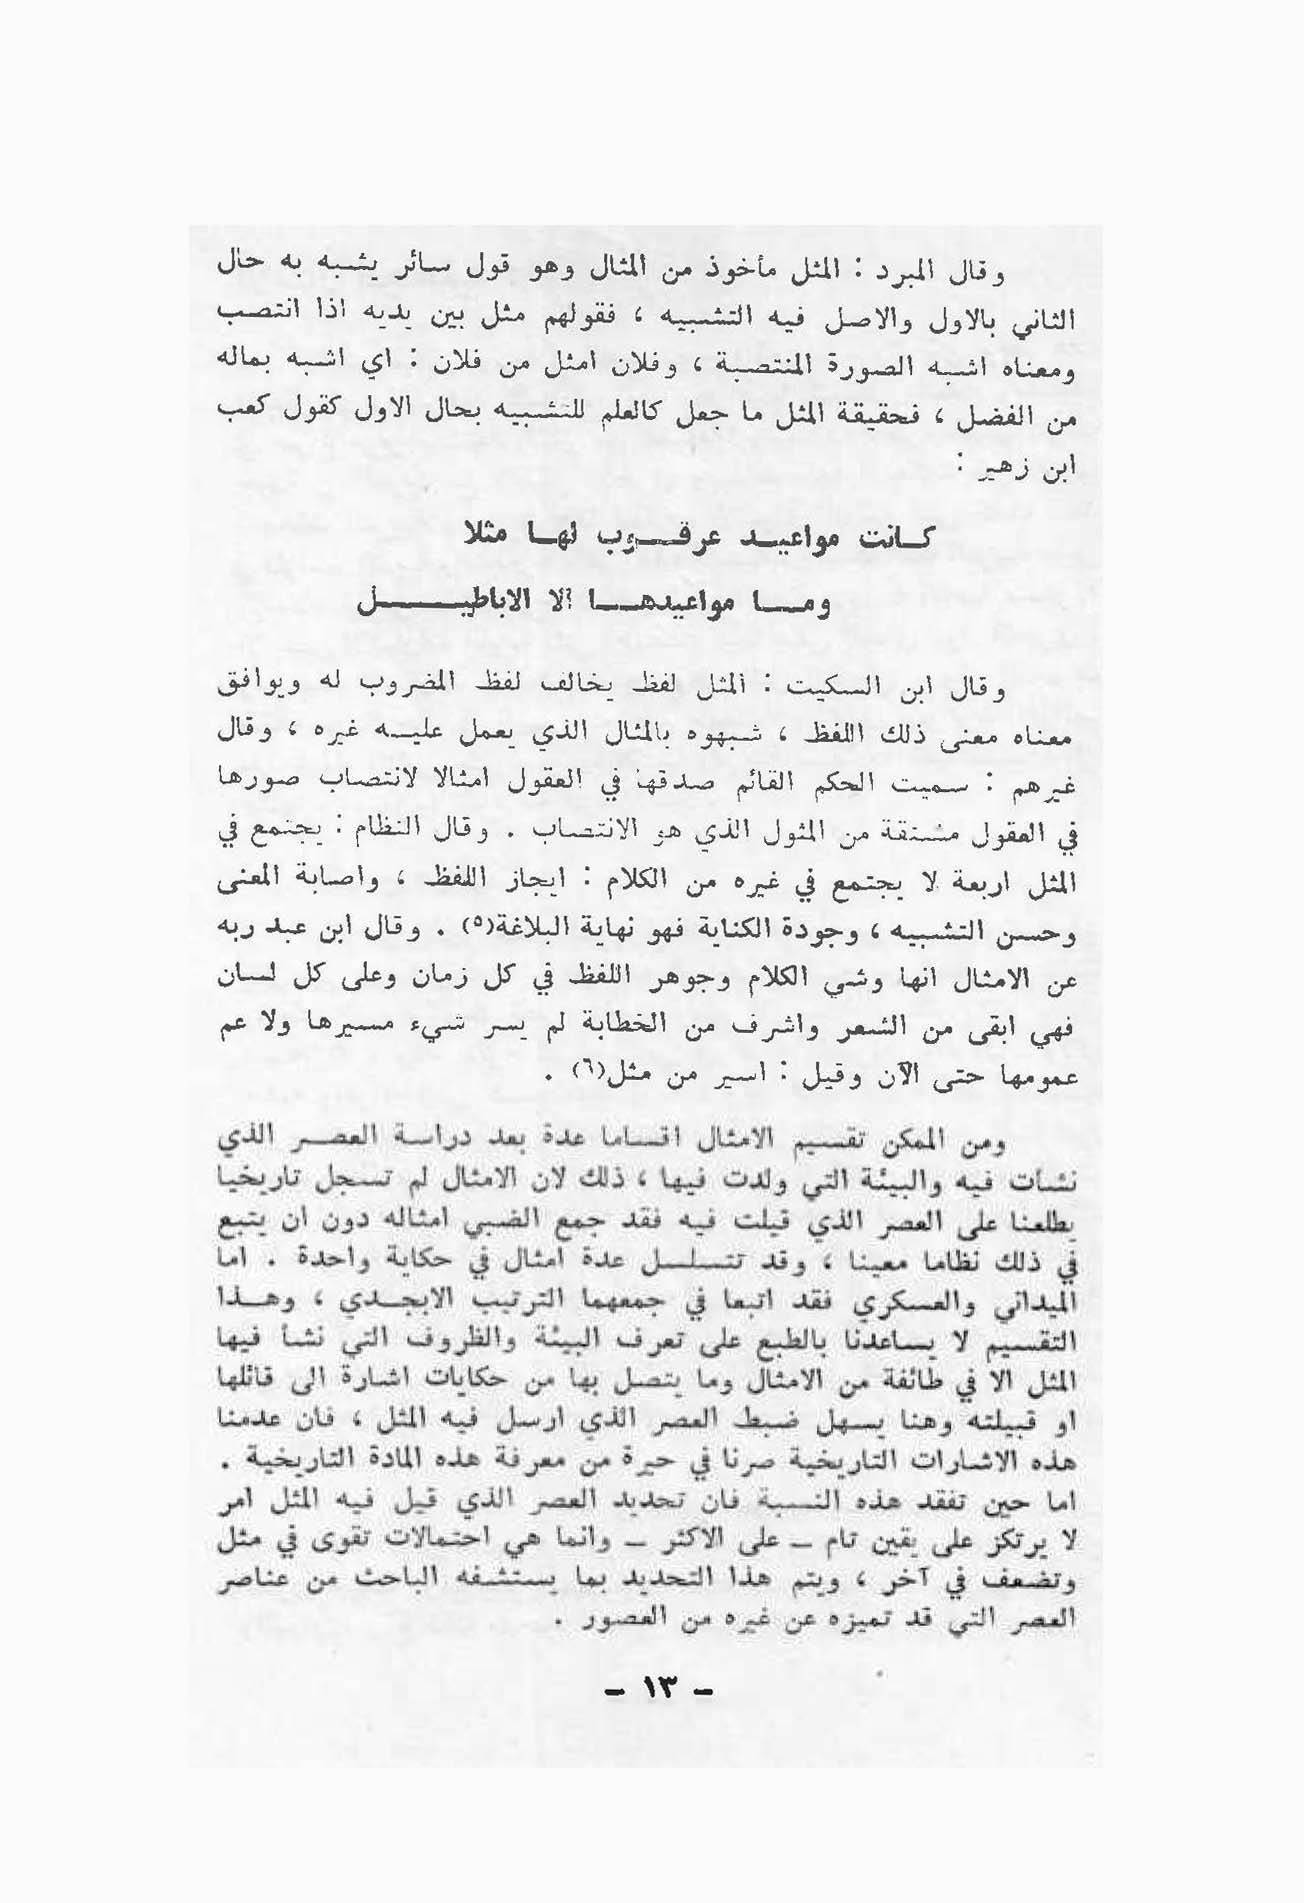 وقال المبرد : المثل مأخوذ من المثال وهو قول سائر يشبه به حال
الثاني بالاول والاصل فيه التشبيه ، فقولهم مثل بين يديه اذا انتصب
ومعناه اشبه الصورة المنتصبة ، وفلان امثل من فلان : اي اشبه بماله
من الفضل ، فحقيقة المثل ما جعل كالعلم للتشبيه بحال الاول كقول كعب
ابن زهير :
كانت مواعيد عرقوب لها مثلا
وما مواعيدها الا الاباطيل
وقال ابن السكيت : المثل لفظ يخالف لفظ المضروب له ويوافق
معناه معنى ذلك اللفظ ، شبهوه بالمثال الذي يعمل عليه غيره ، وقال
غيرهم : سميت الحكم القائم صدقها في العقول امثالا لانتصاب صورها
في العقول مشتقة من المثول الذي هو الانتصاب . وقال النظام : يجتمع في
المثل اربعة لا يجتمع في غيره من الكلام : ايجاز اللفظ ، واصابة المعنى
وحسن التشبيه ، وجودة الكناية فهو نهاية البلاغة(٥) . وقال ابن عبد ربه
عن الامثال انها وشي الكلام وجوهر اللفظ في كل زمان وعلى كل لسان
فهي ابقى من الشعر واشرف من الخطابة لم يسر شيء مسيرها ولا عم
عمومها حتى الآن وقيل : اسير من مثل(٦) .
ومن الممكن تقسيم الامثال اقساما عدة بعد دراسة العصر الذي
نشأت فيه والبيئة التي ولدت فيها ، ذلك لان الامثال لم تسجل تاريخيا
يطلعنا على العصر الذي قيلت فيه فقد جمع الضبي امثاله دون ان يتبع
في ذلك نظاما معينا ، وقد تتسلسل عدة امثال في حكاية واحدة . اما
الميداني والعسكري فقد اتبعا في جمعهما الترتيب الابجدي ، وهذا
التقسيم لا يساعدنا بالطبع على تعرف البيئة والظروف التي نشأ فيها
المثل الا في طائفة من الامثال وما يتصل بها من حكايات اشارة الى قائلها
او قبيلته وهنا يسهل ضبط العصر الذي ارسل فيه المثل ، فان عدمنا
هذه الاشارات التاريخية صرنا في حيرة من معرفة هذه المادة التاريخية .
اما حين تفقد هذه النسبة فان تحديد العصر الذي قيل فيه المثل امر
لا يرتكز على يقين تام – على الاكثر – وانما هي احتمالات تقوى في مثل
وتضعف في آخر ، ويتم هذا التحديد بما يستشفه الباحث من عناصر
العصر التي قد تميزه عن غيره من العصور .
– ١٣ –